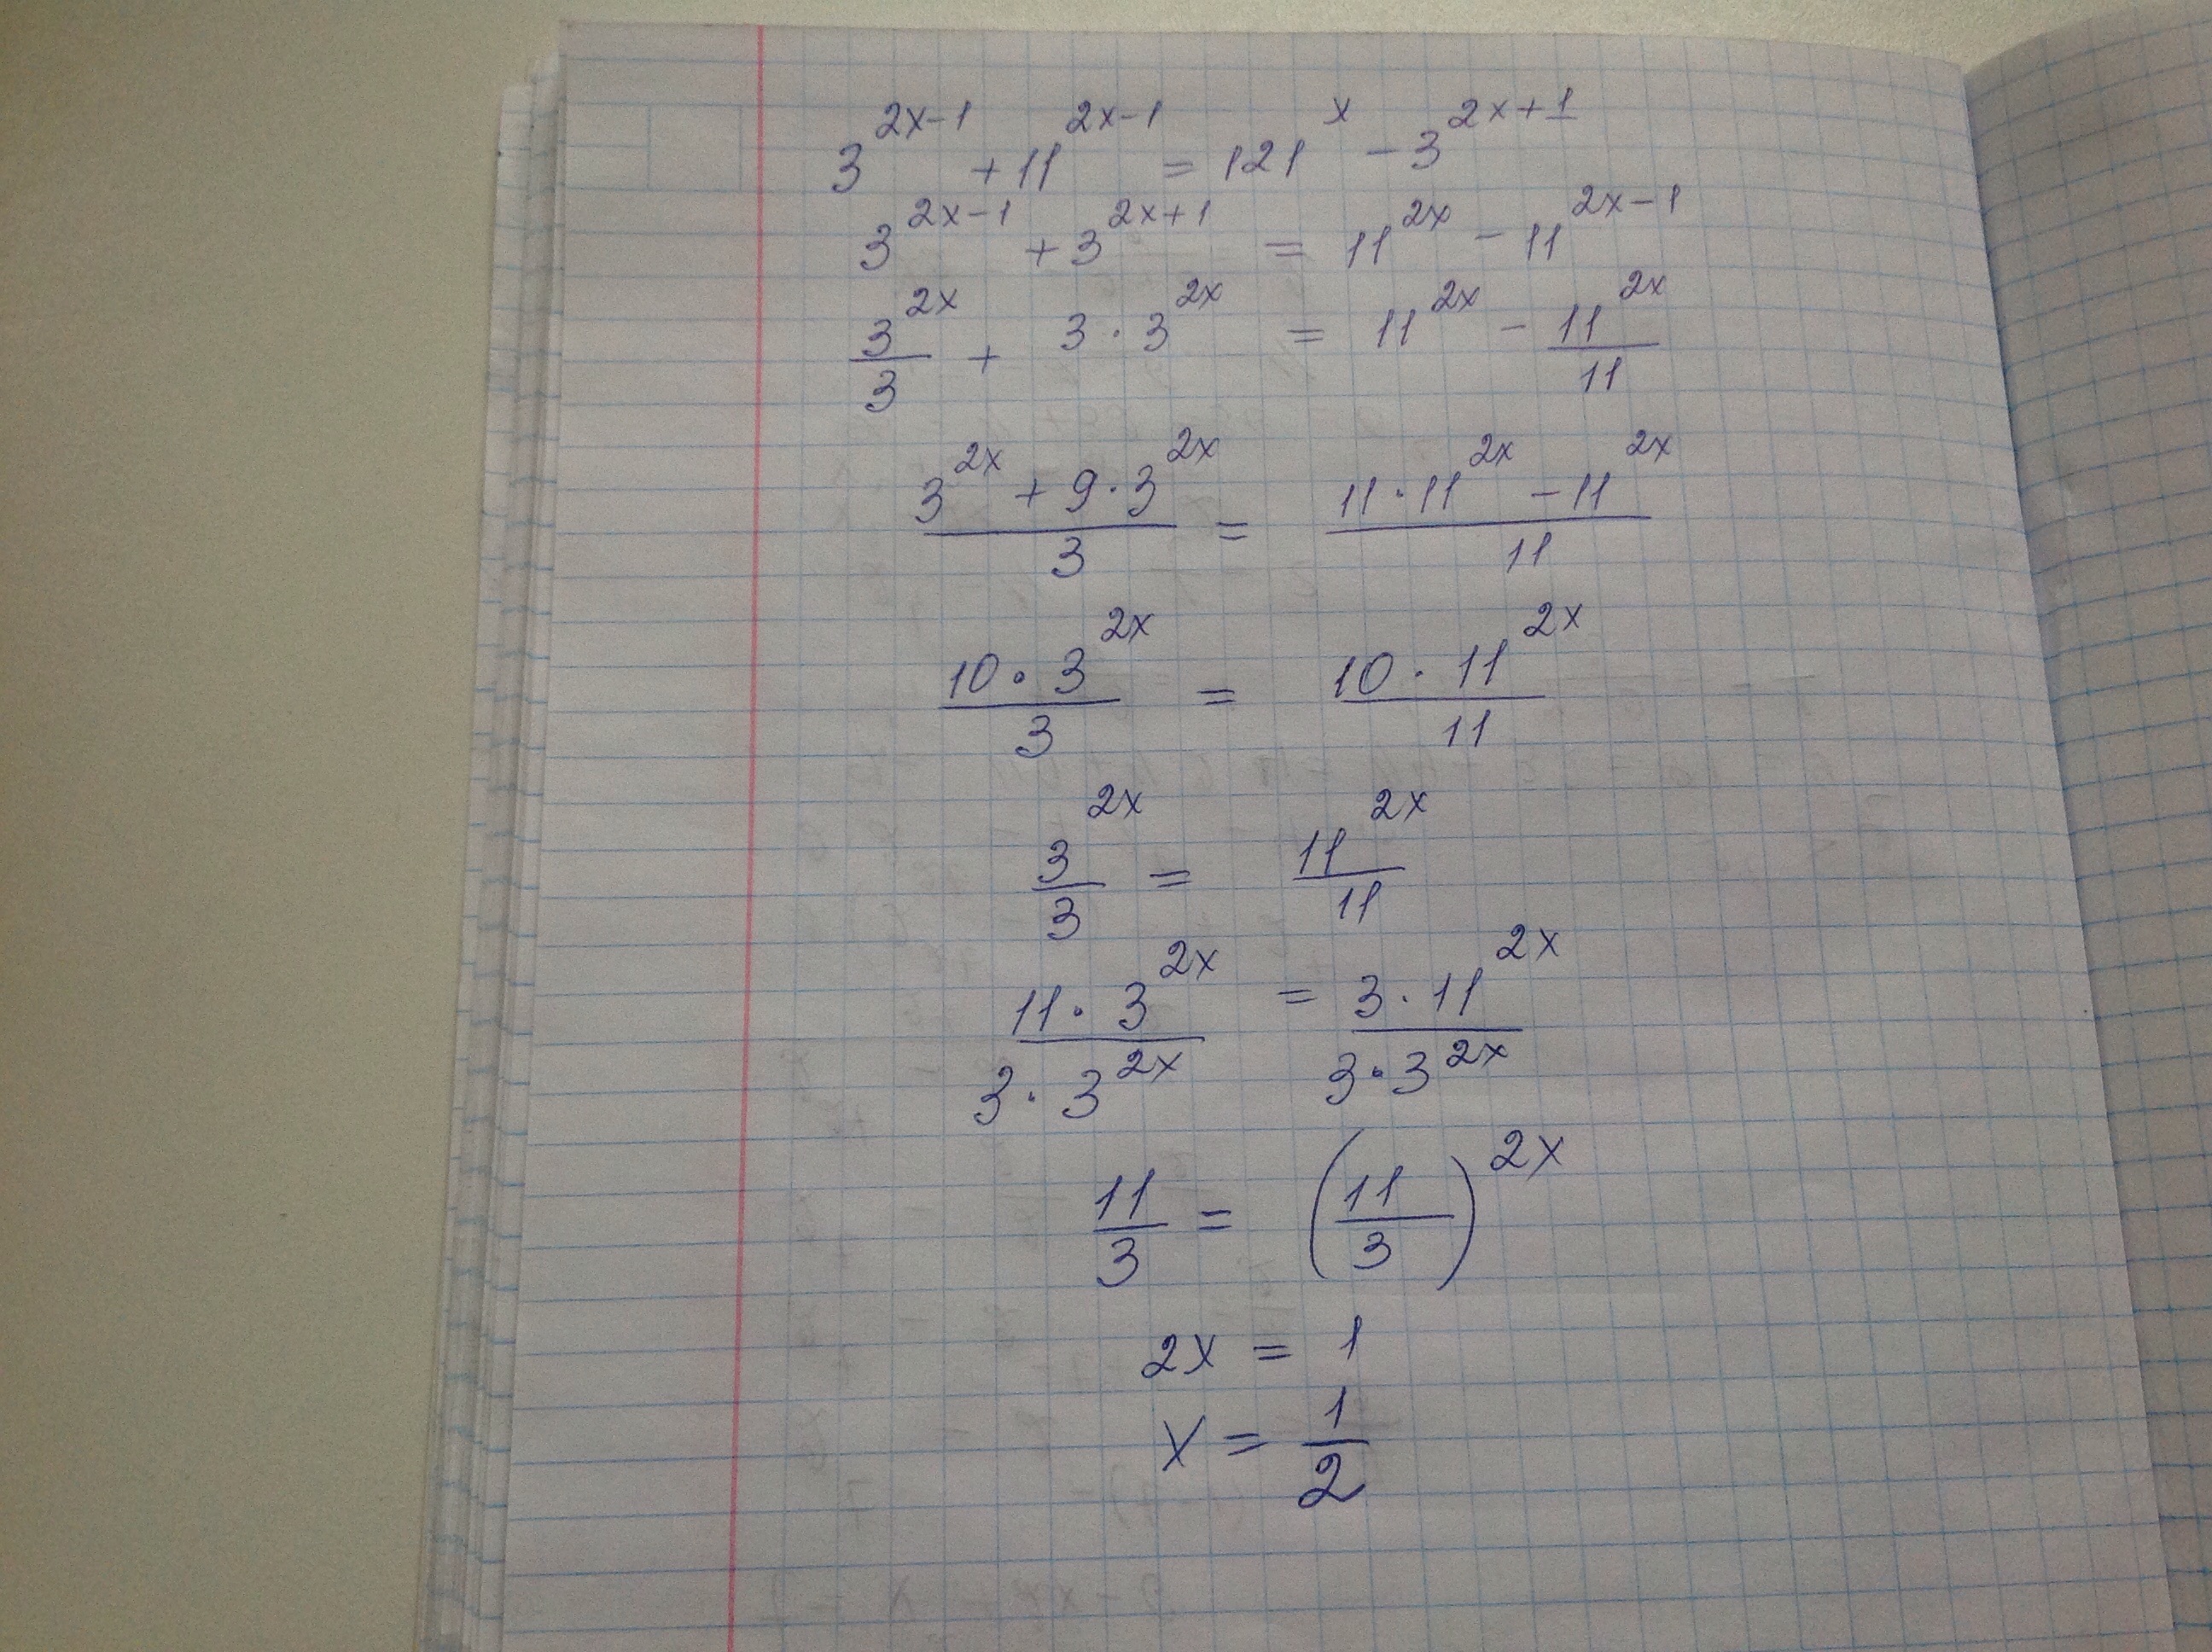 3^{2x-1} + 11^{2x-1} = 121^x - 3^{2x+1}
3^{2x-1} + 3^{2x+1} = 11^{2x} - 11^{2x-1}
\frac{3^{2x}}{3} + 3 · 3^{2x} = 11^{2x} - \frac{11^{2x}}{11}
\frac{3^{2x} + 9 · 3^{2x}}{3} = \frac{11 · 11^{2x} - 11^{2x}}{11}
\frac{10 · 3^{2x}}{3} = \frac{10 · 11^{2x}}{11}
\frac{3^{2x}}{3} = \frac{11^{2x}}{11}
\frac{11 · 3^{2x}}{3 · 3^{2x}} = \frac{3 · 11^{2x}}{3 · 3^{2x}}
\frac{11}{3} = (\frac{11}{3})^{2x}
2x = 1
x = \frac{1}{2}